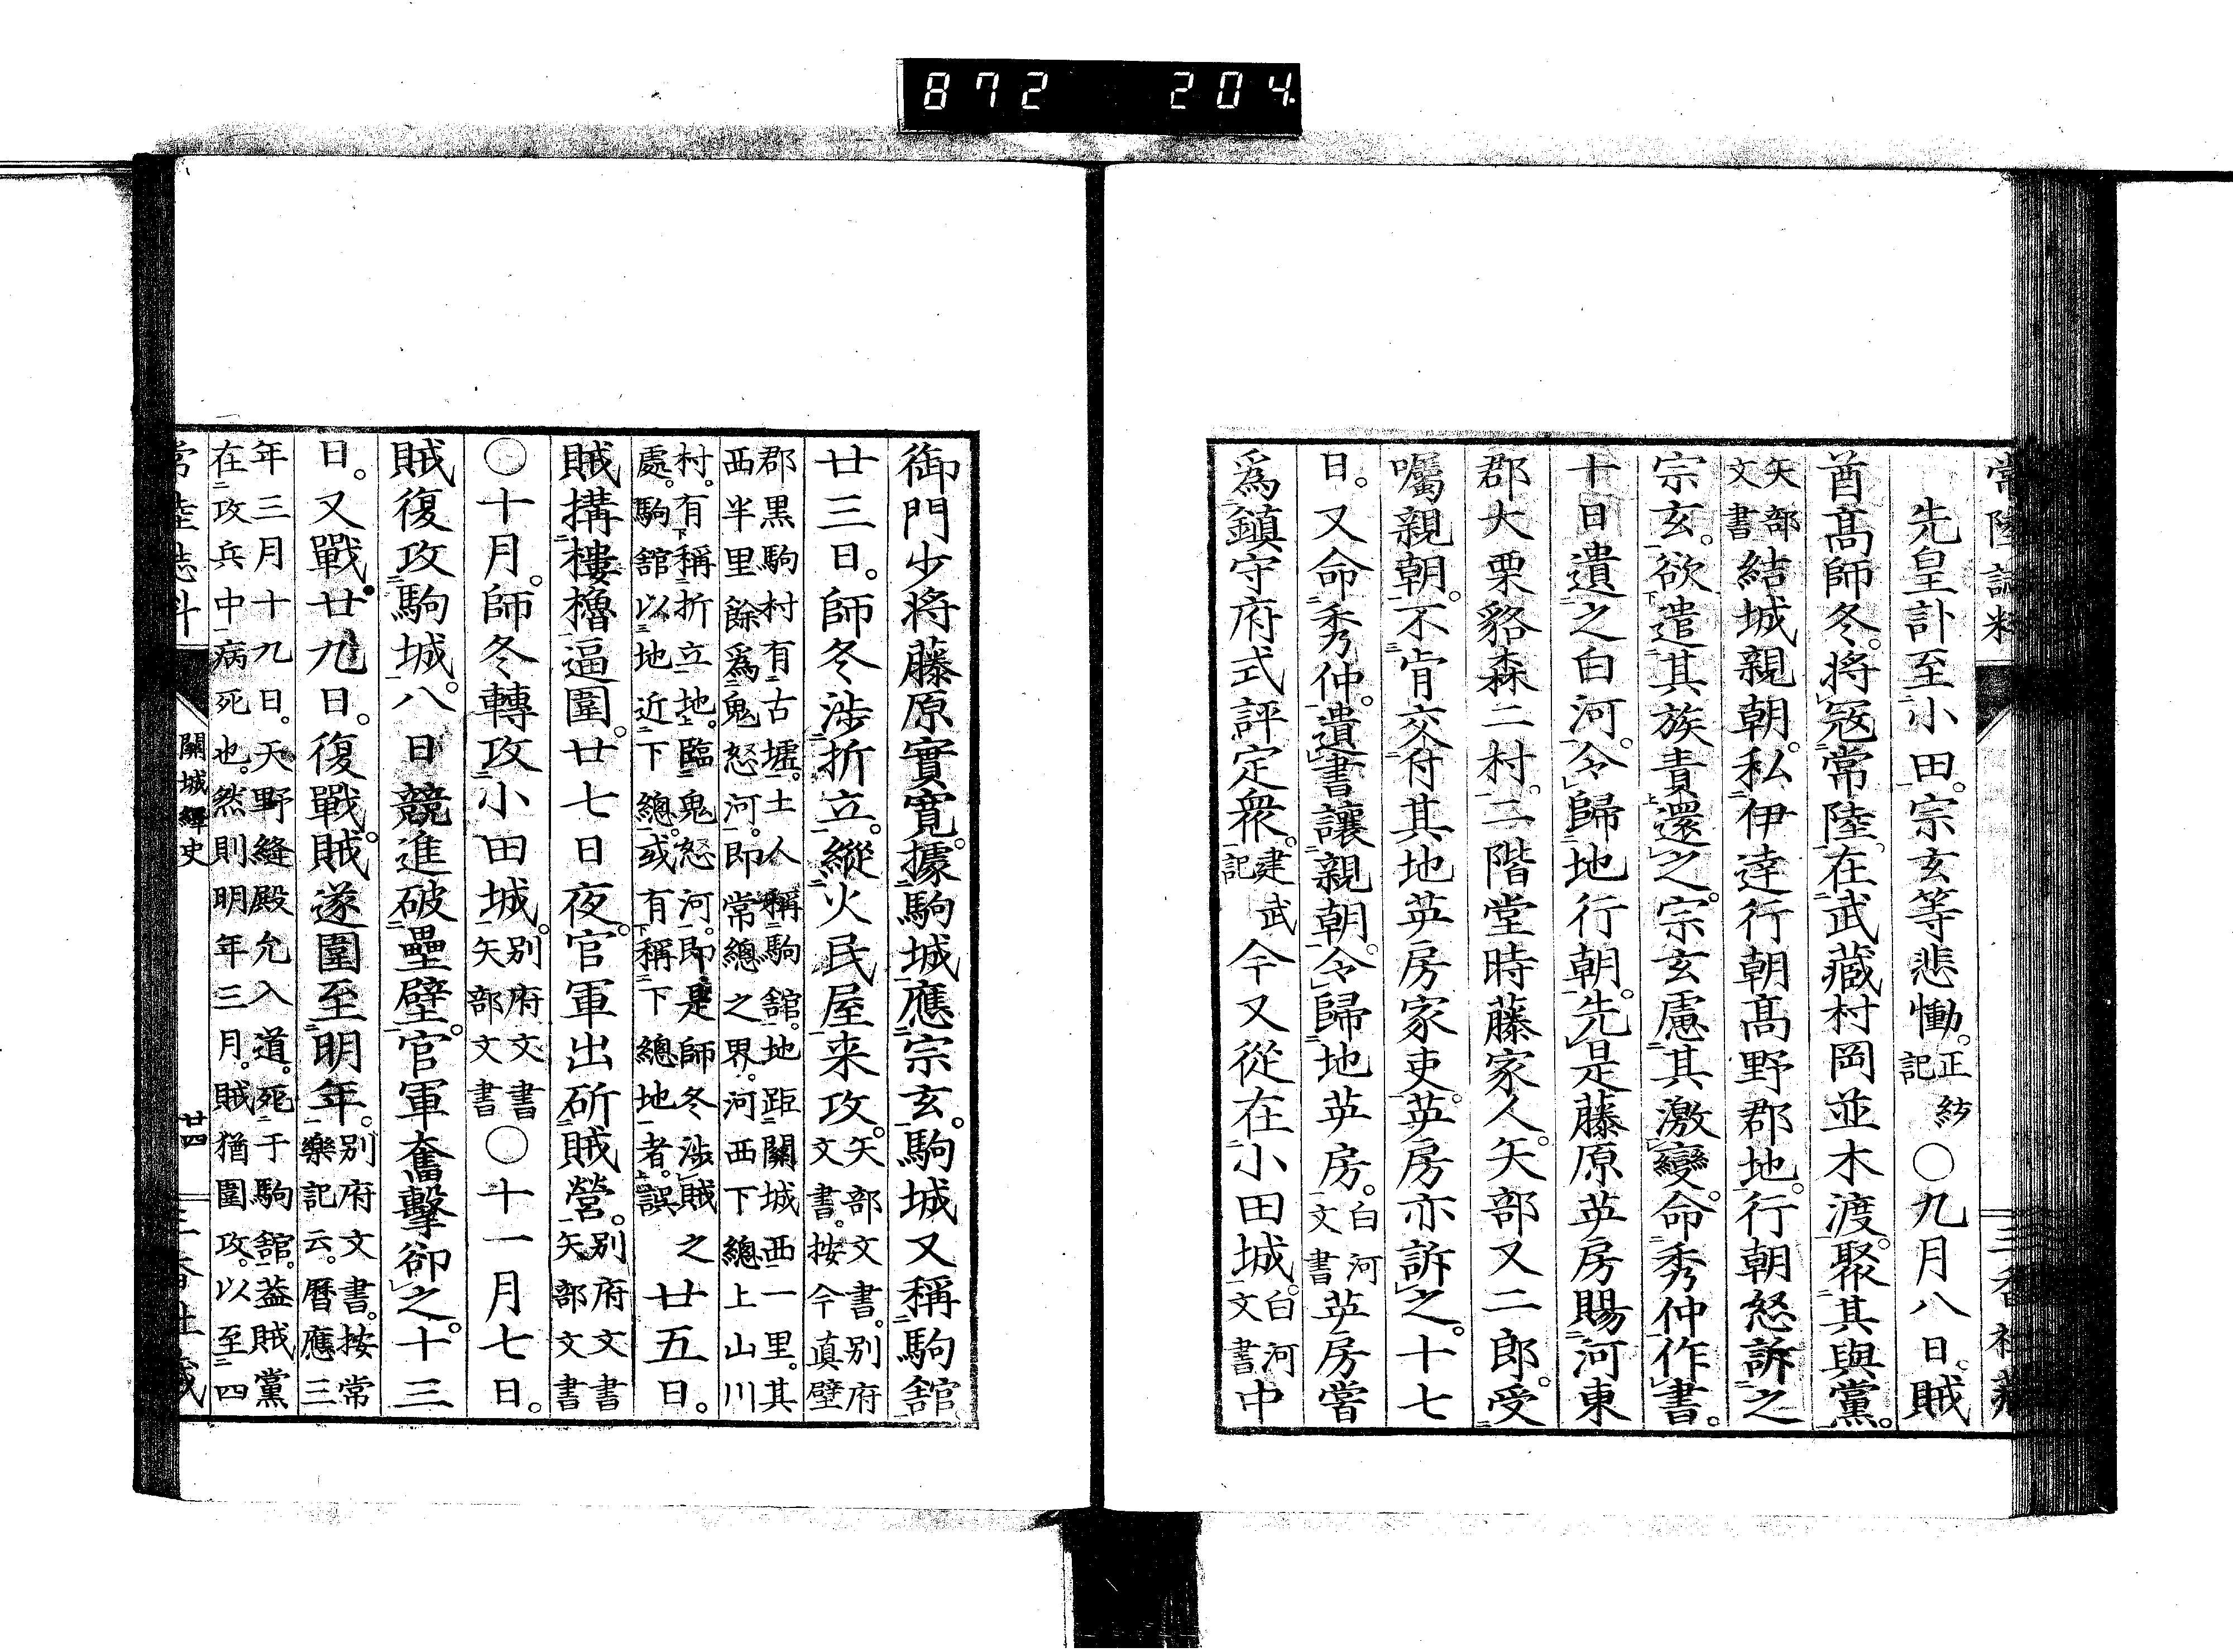 872 204
先皇訃至小田。宗玄等悲慟。正統記○九月八日。賊
酋高師冬。將寇常陸。在武藏村岡並木渡。聚其與黨。
矢部文書結城親朝。私伊達行朝高野郡地。行朝怒訴之
宗玄。欲遣其族責還之。宗玄慮其激變。命秀仲作書。
十日遺之白河。令歸地行朝。先是藤原英房賜河東
郡大栗貉森二村。二階堂時藤家人。矢部又二郎。受
囑親朝。不肯交付其地英房家吏。英房亦訴之。十七
日。又命秀仲。遺書讓親朝。令歸地英房。白河文書英房嘗
爲鎮守府式評定衆。建武記今又從在小田城。白河文書中
御門少將藤原實寛。據駒城應宗玄。駒城又稱駒舘。
廿三日。師冬涉折立。縱火民屋来攻。矢部文書。別府文書。按今眞壁
郡黒駒村有古墟。土人稱駒舘。地距關城西一里。其
西半里餘爲鬼怒河。即常總之界。河西下總上山川
村。有稱折立地。臨鬼怒河。即是師冬涉賊之
處。駒舘以地近下總。或有稱下總地者。誤廿五日。
賊搆樓櫓逼圍。廿七日夜。官軍出斫賊營。別府文書矢部文書
○十月。師冬轉攻小田城。別府文書矢部文書○十一月七日。
賊復攻駒城。八日競進破壘壁。官軍奮擊卻之。十三
日。又戰。廿九日。復戰。賊遂圍至明年。別府文書。按常樂記云。曆應三
年三月十九日。天野縫殿允入道。死于駒舘。蓋賊黨
在攻兵中病死也。然則明年三月。賊猶圍攻。以至四
關城繹史
廿四